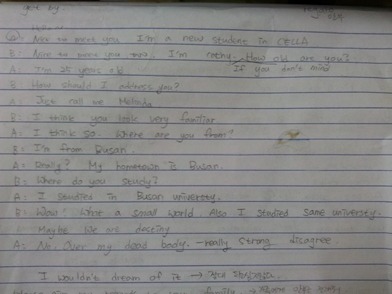 get by
⑥ Nice to meet you I'm a new student in CELLA
B: Nice to meet you too. I'm cathy. How old are you?
If you don't mind
A: I'm 25 years old
B: How should I address you?
A: Just call me
B: I think you look very familiar.
A: I think so. Where are you from?
B: I'm from Busan.
A: Really? My hometown is Busan.
B: Where do you study?
A: I studied in Busan university.
B: Wow! What a small world. Also I studied same university.
Maybe we are destiny
A: No. Over my dead body. → really strong disagree.
I wouldn't dream of it →